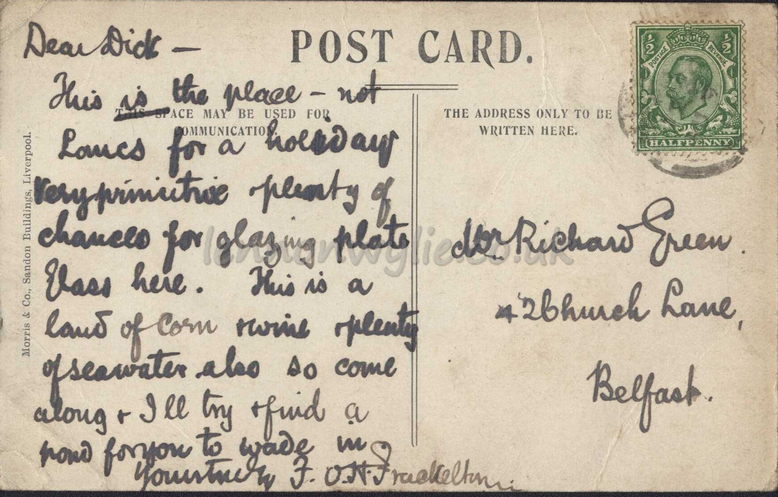 POST CARD.
½ ½
POSTAGE REVENUE
HALFPENNY
THIS SPACE MAY BE USED FOR
COMMUNICATION.
THE ADDRESS ONLY TO BE
WRITTEN HERE.
Morris & Co., Sandon Buildings, Liverpool.
Dear Dick —
This is the place – not
Lancs for a holiday
very primitive + plenty of
chances for glazing plate
Glass here. This is a
land of Corn + wine + plenty
of seawater also so come
along + I'll try + find a
pond for you to wade in
Yourstruly F. O. N. Frackelton
Mr. Richard Green.
42 Church Lane,
Belfast.
lennonwylie.co.uk